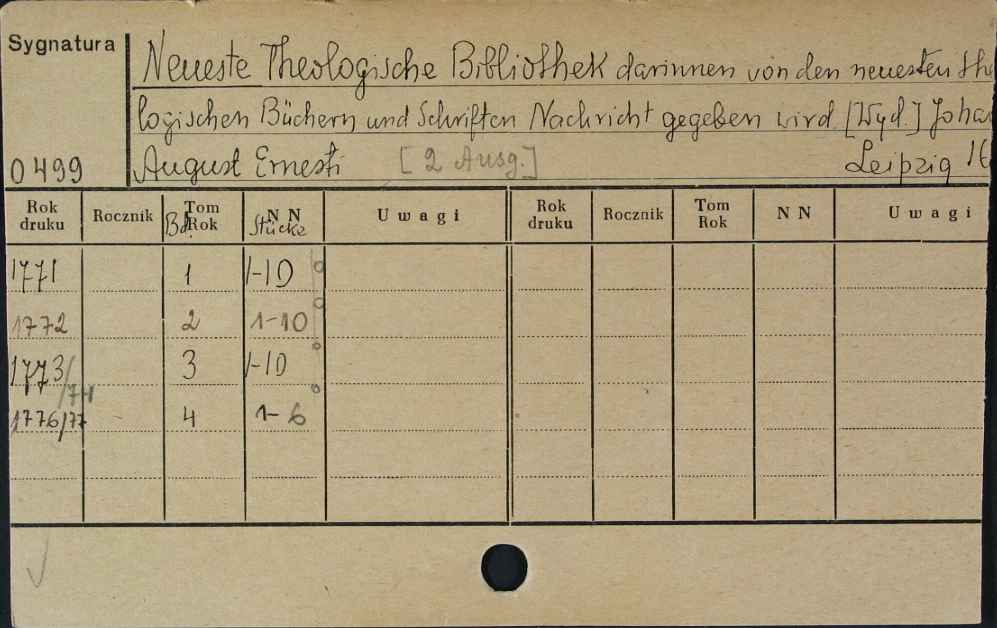 Sygnatura
Neueste Theologische Bibliothek darinnen von den neuesten tho
logischen Büchern und Schriften Nachricht gegeben wird. [Wyd.] Johan
0499 August Ernesti [2 Ausg.] Leipzig
Rok druku Rocznik Tom Rok Bd. N N Stücke Uwagi Rok druku Rocznik Tom Rok N N Uwagi
1771 1 1-10
1772 2 1-10
1773/74 3 1-10
1776/77 4 1-6